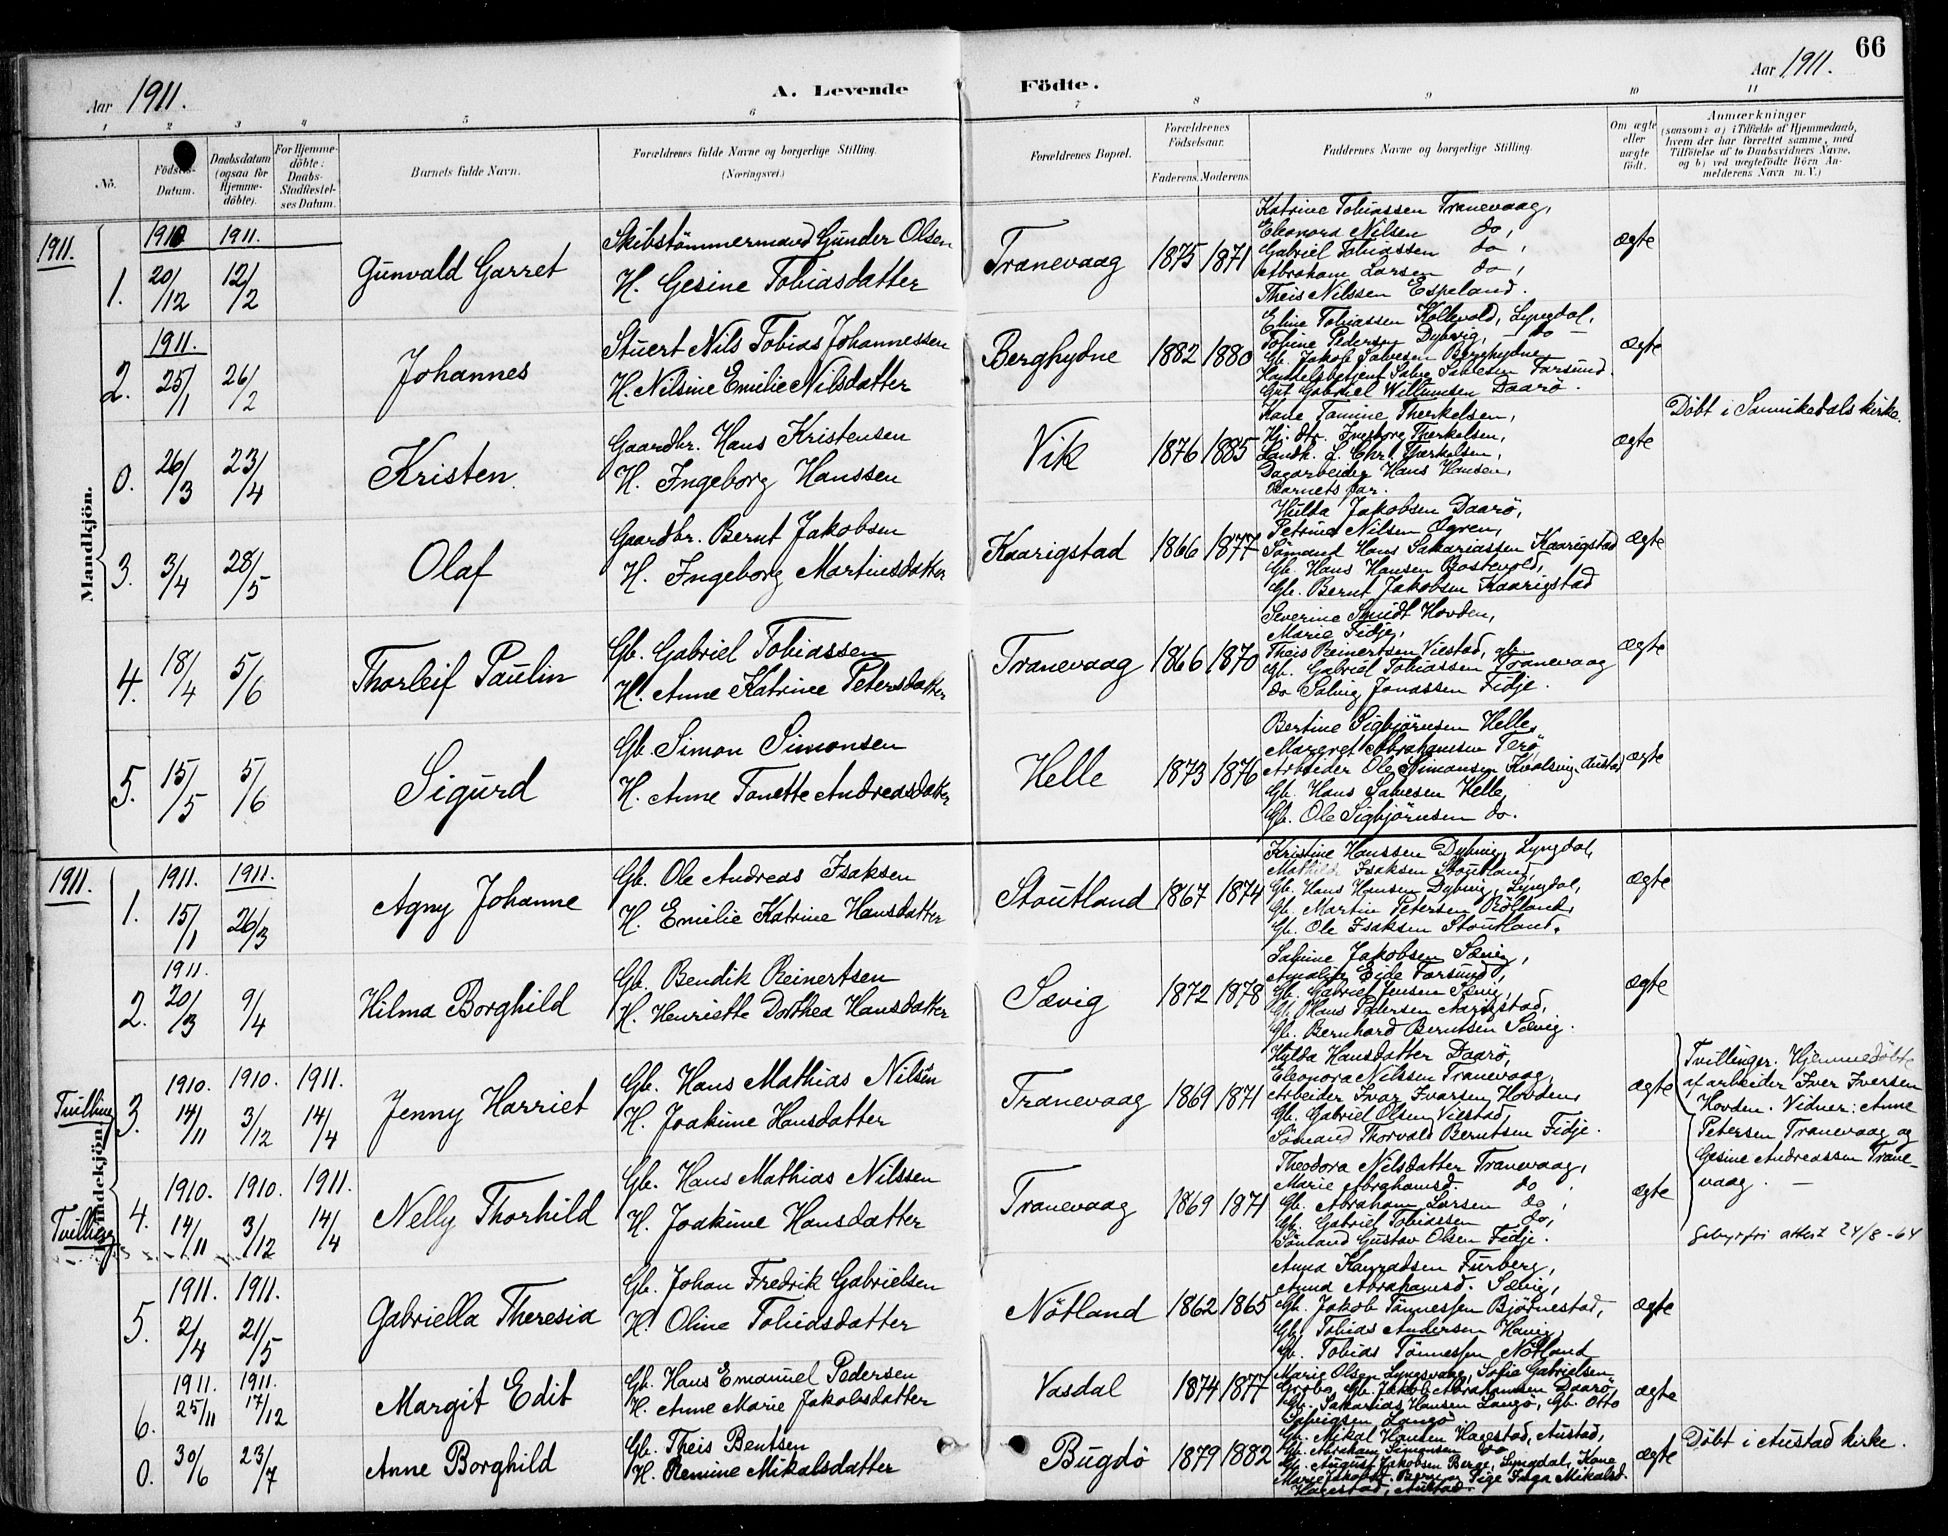 Aar 1911.
A. Levende
Födte.
Aar 1911.
66
1 2 3 4 5 6 7 8 9 10 11
No.
Födsels-
Datum.
Daabsdatum
(ogsaa for
Hjemme-
döbte).
For Hjemme-
döbte:
Daabs-
Stadfæstel-
ses Datum.
Barnets fulde Navn.
Forældrenes fulde Navne og borgerlige Stilling.
(Næringsvei.)
Forældrenes Bopæl.
Forældrenes
Födselsaar.
Faderens. Moderens.
Faddernes Navne og borgerlige Stilling.
Om ægte
eller
uægte
født.
Anmærkninger
(saasom: a) i Tilfælde af Hjemmedaab,
hvem der har forrettet samme, med
Tilföielse af to Daabsvidners Navne,
og b) ved uægtefödte Börn An-
melderens Navn m. V.)
Mandkjön.
1911.
1910 1911.
1. 20/12 12/2
Gunvald Garret
Skibstömmermand Gunder Olsen
H. Gesine Tobiasdatter
Tranevaag 1875 1871
Katrine Tobiassen Tranevaag,
Eleonora Nilsen do,
Gabriel Tobiassen do,
Abraham Larsen do,
Theis Nilssen Espeland.
ægte
1911.
2. 25/1 26/2
Johannes
Stuert Nils Tobias Johannessen
H. Nilsine Emilie Nilsdatter
Berghydne 1882 1880
Eline Tobiassen Kollevold, Lyngdal,
Tobine Pedersen Dybvig, — do —
Gb. Jakob Salvesen Berghydne,
Handelsbetjent Salve Salvesen Farsund.
Gut Gabriel Willumsen Daarö.
ægte
0. 26/3 23/4
Kristen.
Gaardbr. Hans Kristensen
H. Ingeborg Hanssen
Vik 1876 1885
Kone Tomine Therkelsen,
Hj. dtr. Ingeborg Therkelsen,
Landh. L. Chr. Therkelsen,
Dagarbeider Hans Hansen,
Barnets far.
ægte
Döbt i Sannikedals kirke.
3. 3/4 28/5
Olaf
Gaardbr. Bernt Jakobsen
H. Ingeborg Martinsdatter
Kaarigstad 1866 1877
Hulda Jakobsen Daarö,
Petrine Nilsen Ogren,
Sömand Hans Sakariassen Kaarigstad
Gb. Hans Hansen Rostevold,
Gb. Bernt Jakobsen Kaarigstad
ægte
4. 18/4 5/6
Thorleif Paulin
Gb. Gabriel Tobiassen
H. Anne Katrine Petersdatter
Tranevaag 1866 1870
Severine Smidt Hovden,
Marie Fidje,
Theis Reinertsen Viestad, gb.
Gb. Gabriel Tobiassen Tranevaag
do Salve Jonassen Fidje.
ægte
5. 15/5 5/6
Sigurd
Gb. Simon Simonsen
H. Anne Tonette Andreasdatter
Helle 1873 1876
Bertine Sigbjörnsen Helle,
Margret Abrahamsen Terö,
Arbeider Ole Simonsen Kvalsvig, Austad
Gb. Hans Salvesen Helle,
Gb. Ole Sigbjörnsen do.
ægte
Kvindekjön.
1911.
1911. 1911.
1. 15/1 26/3
Agny Johanne
Gb. Ole Andreas Isaksen
H. Emilie Katrine Hansdatter
Stoutland 1867 1874
Kristine Hanssen Dybvig, Lyngdal,
Mathilde Isaksen Stoutland,
Gb. Hans Hansen Dybvig, Lyngdal,
Gb. Martin Petersen Rölland,
Gb. Ole Isaksen Stoutland.
ægte
1911.
2. 20/3 9/4
Hilma Borghild
Gb. Bendik Reinertsen
H. Henriette Dorthea Hansdatter
Sævig 1872 1878
Sabine Jakobsen Sævig,
Amalie Eide Farsund,
Gb. Gabriel Jensen Sævig,
Gb. Hans Pedersen Aarigstad,
Gb. Bernhard Berntsen Sævig.
ægte
Tvilling
1910. 1910. 1911.
3. 14/11 3/12 14/4
Jenny Harriet
Gb. Hans Mathias Nilsen
H. Joakime Hansdatter
Tranevaag 1869 1871
Hylda Hansdatter Daarö,
Eleonora Nilssen Tranevaag,
Arbeider Ivar Ivarsen Hovden,
Gb. Gabriel Olsen Viestad,
Sömand Thorvald Berntsen Fidje.
ægte
Tvillinger. Hjemmedöbte
af arbeider Iver Iversen
Hovden. Vidner: Anne
Petersen Tranevaag og
Gesine Andreassen Trane-
vaag. —
Tvilling
1910. 1910. 1911.
4. 14/11 3/12 14/4
Nelly Thorhild
Gb. Hans Mathias Nilssen
H. Joakime Hansdatter
Tranevaag 1869 1871
Theodora Nilsdatter Tranevaag,
Marie Abrahamsd. do,
Gb. Abraham Larsen do,
Gb. Gabriel Tobiassen do,
Sömand Gustav Olsen Fidje.
ægte
Gebyrfri attest 24/8-64
1911. 1911.
5. 2/4 21/5
Gabriella Theresia
Gb. Johan Fredrik Gabrielsen
H. Oline Tobiasdatter
Nötland 1862 1865
Anna Konradsen Furberg,
Anna Abrahamsd. Sævig,
Gb. Jakob Tönnessen Björnestad,
Gb. Tobias Andersen Havig,
Gb. Tobias Tönnessen Nötland
ægte
1911. 1911.
6. 25/11 17/12
Margit Edit
Gb. Hans Emanuel Pedersen
H. Anne Marie Jakobsdatter
Vasdal 1874 1877
Marie Olsen Lyngsvaag, Sofie Gabrielsen
Grobo, Gb. Jakob Abrahamsen Daarö,
Gb. Sakarias Hansen Langö, Gb. Otto
Salvigsen Langö
ægte
0. 30/6 23/7
Anne Borghild
Gb. Theis Bentsen
H. Remine Mikalsdatter
Bugdö 1879 1882
Gb. Mikal Hansen Hagestad, Austad,
Gb. Abraham Simonsen do
Gb. August Jakobsen Berge, Lyngdal, Kone
Marie Jakobsd. Berge, Pige Inga Mikalsd.
Hagestad, Austad.
ægte
Döbt i Austad kirke.